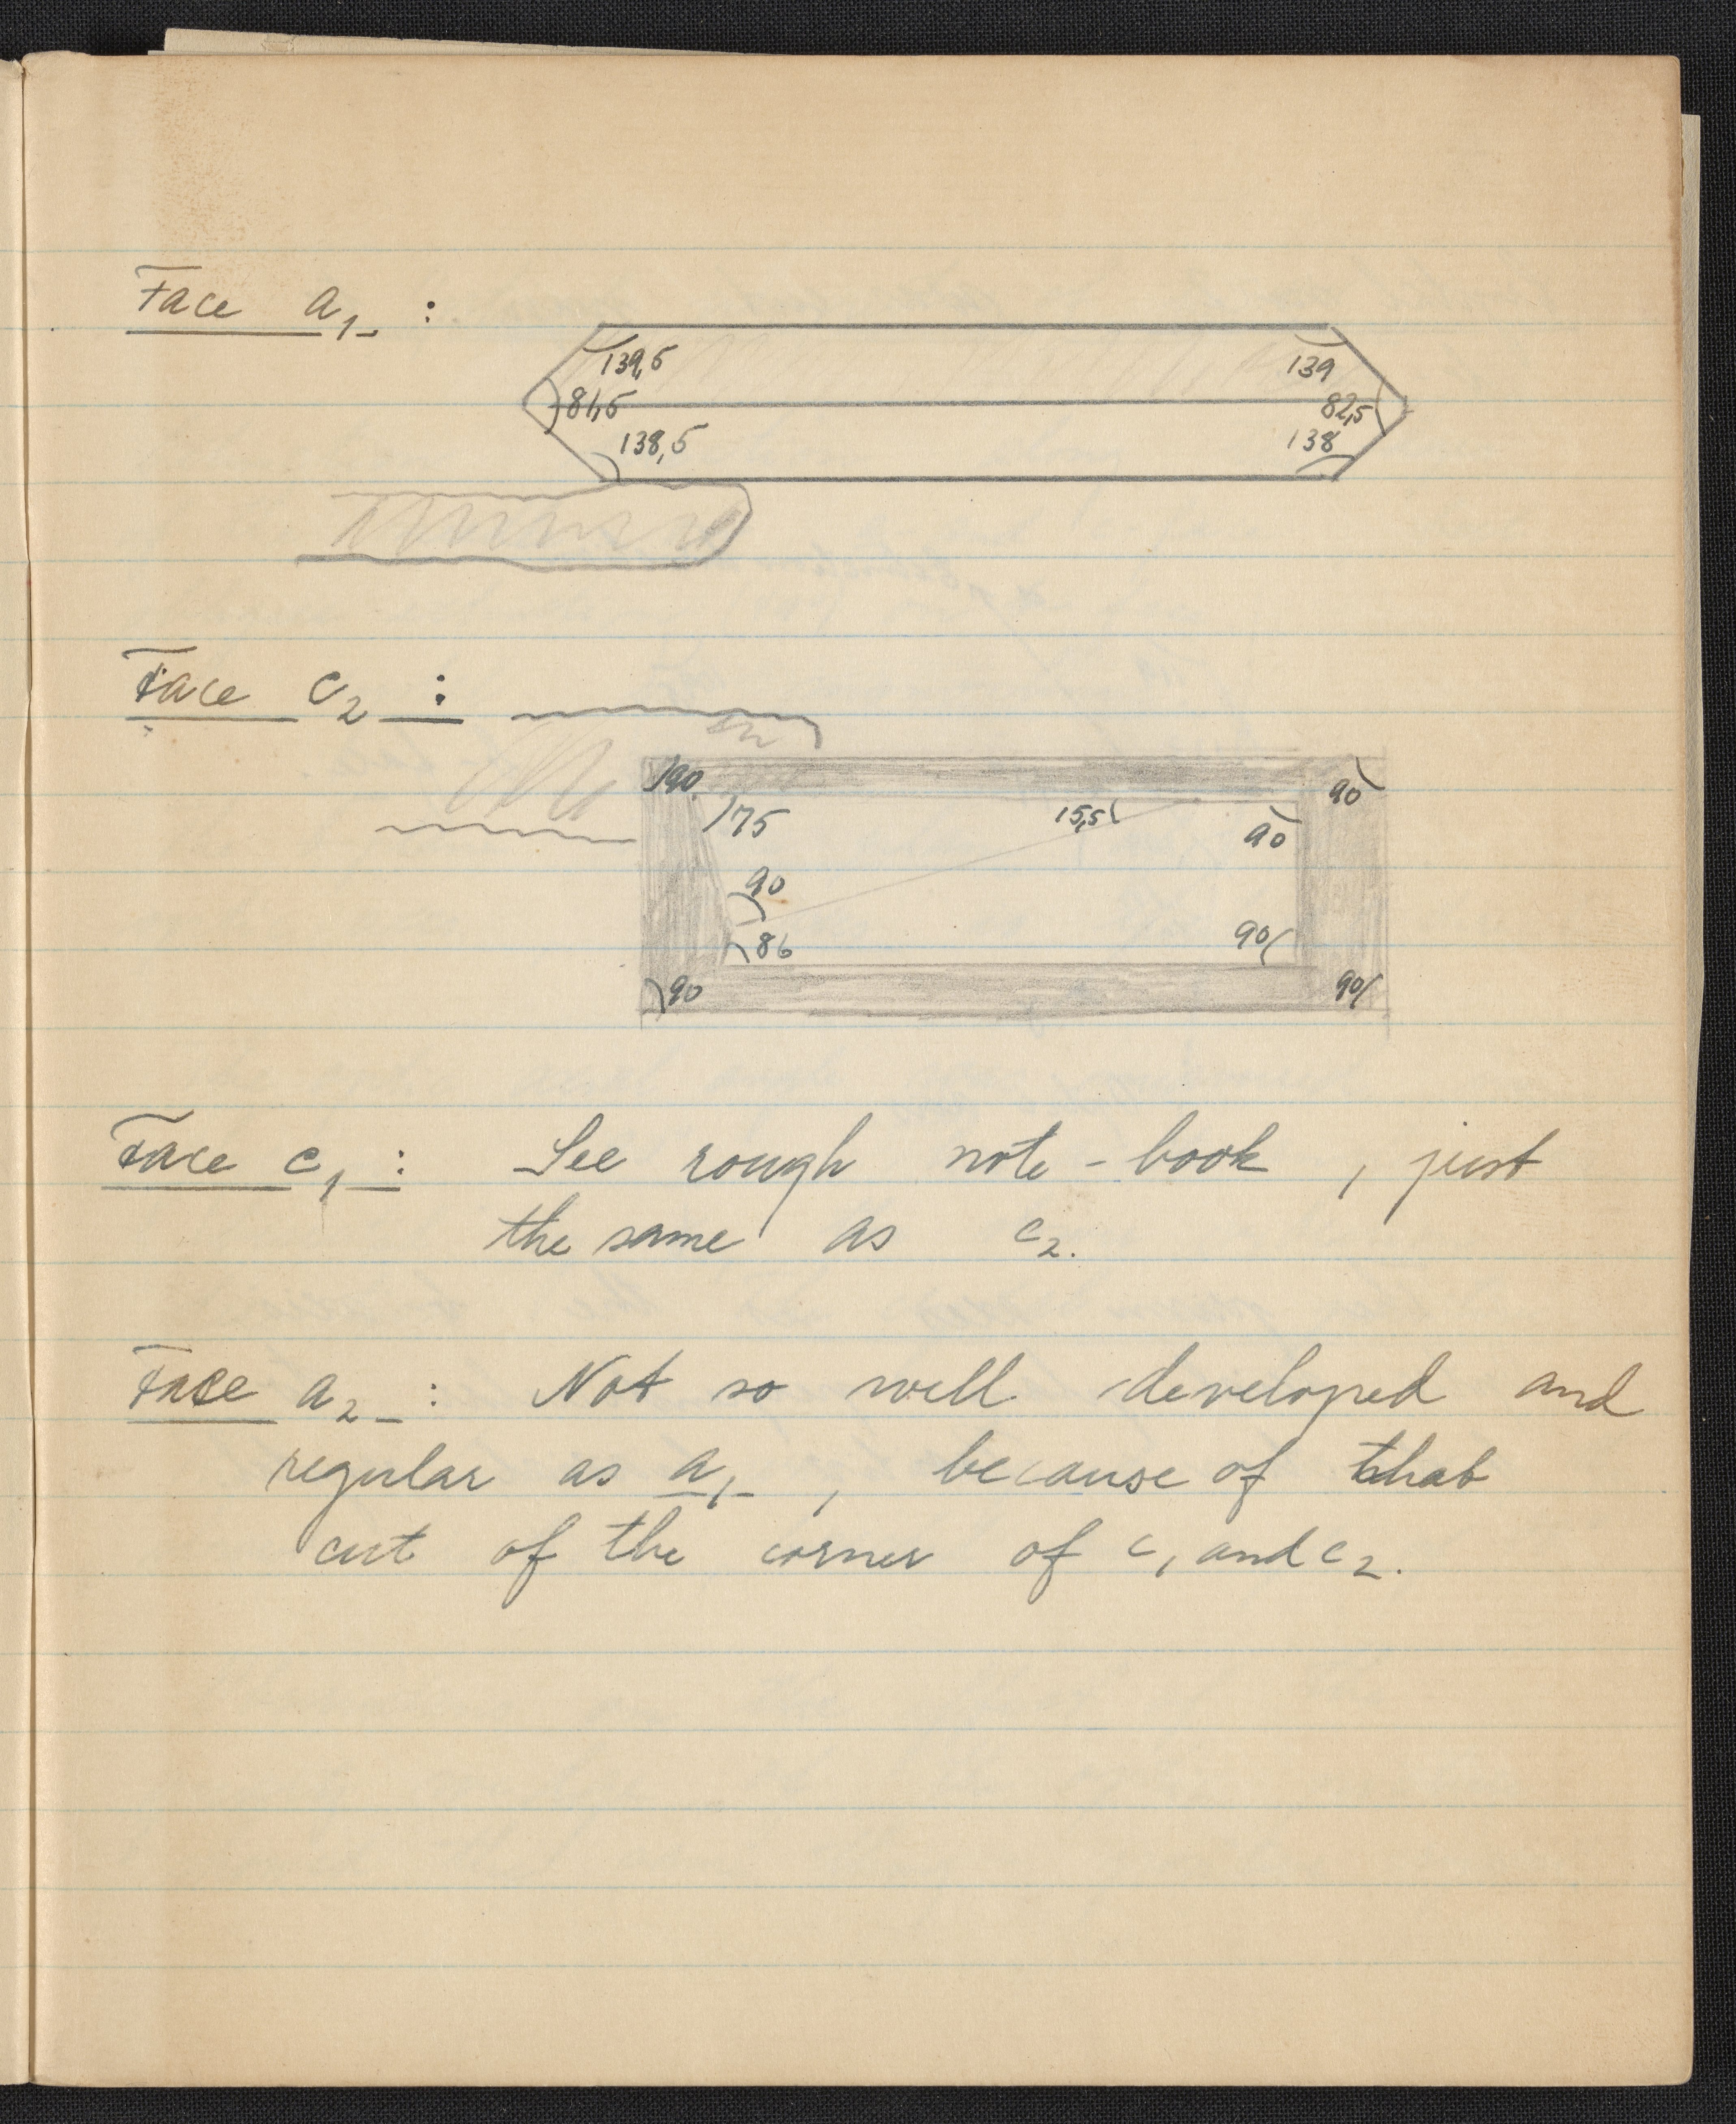 Face a1 :
139,5 139
81,5 82,5
138,5 138
Face c2 :
90 90
75 15,5 90
90
86 90
90 90
Face c1 : See rough note-book , just
the same as c2.
Face a2 : Not so well developed and
regular as a1 , because of that
cut of the corner of c1 and c2.